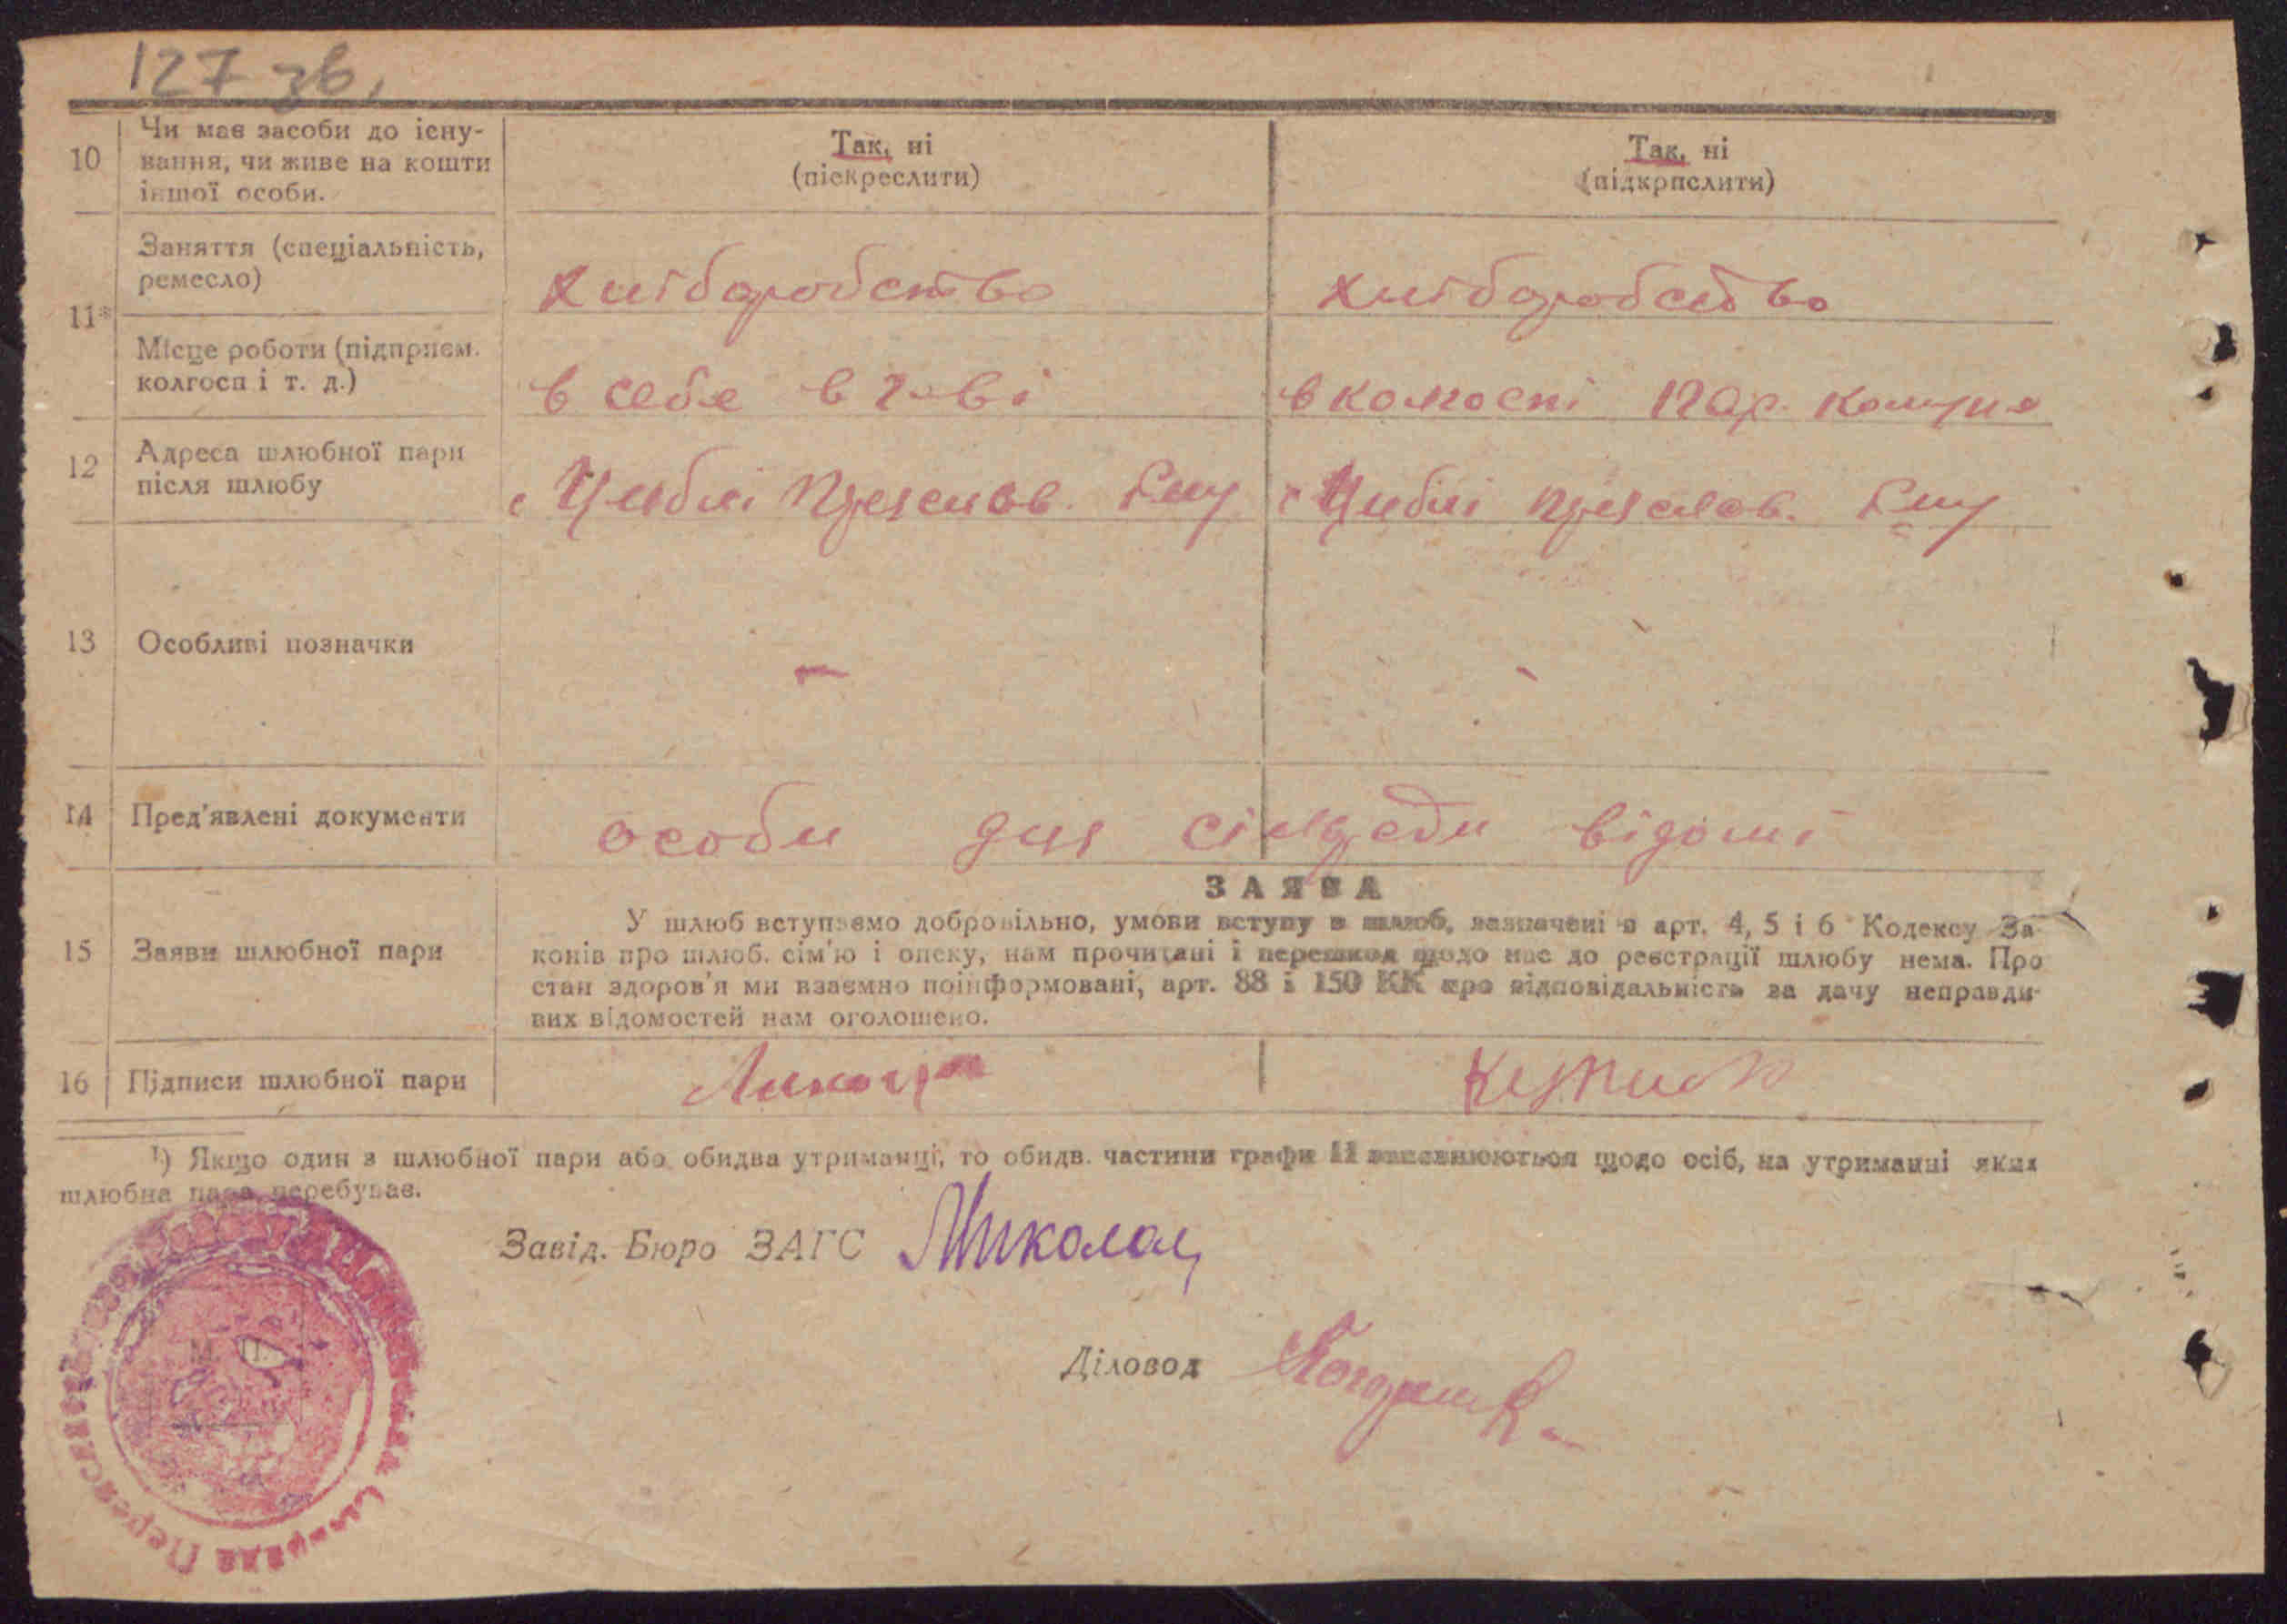 127 зв.
10 Чи має засоби до існу-
вання, чи живе на кошти
іншої особи.
Так, ні
(піскреслити)
Так, ні
(підкрпслити)
11*
Заняття (спеціальність,
ремесло)
хліборобство
хліборобство
Місце роботи (підприєм.
колгосп і т. д.)
в себе в г-ві
в колгоспі
12 Адреса шлюбної пари
після шлюбу
с Циблі Переяслов.
с Циблі Переяслов.
13 Особливі позначки
14 Пред'явлені документи
особи для сільради відомі
ЗАЯВА
15 Заяви шлюбної пари
У шлюб вступаємо добровільно, умови вступу в шлюб, зазначені в арт. 4, 5 і 6 Кодексу За-
конів про шлюб. сім'ю і опеку, нам прочитані і перешкод щодо нас до реєстрації шлюбу нема. Про
стан здоров'я ми взаємно поінформовані, арт. 88 і 150 КК про відповідальність за дачу неправди-
вих відомостей нам оголошено.
16 Підписи шлюбної пари
1) Якщо один з шлюбної пари або обидва утриманці, то обидв. частини графи 11 заповнюються щодо осіб, на утриманні яких
шлюбна пара перебуває.
Завід. Бюро ЗАГС Миколац
Діловод
М. П.